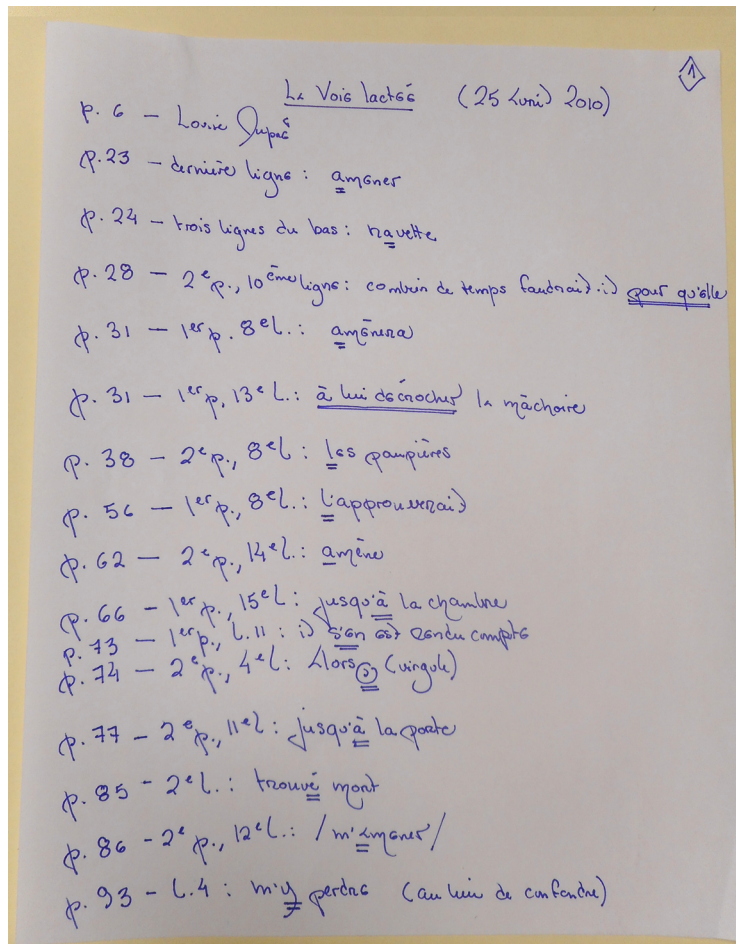 1
La Voie lactée (25 Avril 2010)
p. 6 — Louise Dupré
p. 23 — dernière ligne : amener
p. 24 — trois lignes du bas : navette
p. 28 — 2e p., 10ème ligne : combien de temps faudrait-il pour qu'elle
p. 31 — 1er p. 8e l. : amènera
p. 31 — 1er p, 13e l. : à lui décrocher la mâchoire
p. 38 — 2e p., 8e l : les paupières
p. 56 — 1er p., 8e l. : l'approuverait
p. 62 — 2e p., 14e l. : amène
p. 66 — 1er p., 15e l : jusqu'à la chambre
p. 73 — 1er p., l. 11 : il s'en est rendu compte
p. 74 — 2e p., 4e l : Alors, (virgule)
p. 77 — 2e p., 11e l : jusqu'à la porte
p. 85 - 2e l. : trouvé mort
p. 86 - 2e p., 12e l. : /m'amener/
p. 93 — l. 4 : m'y perdre (au lieu de confondre)